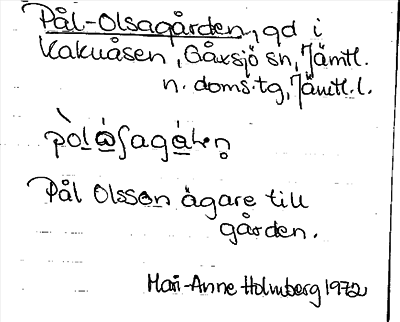 Pål-Olsagården, gd i
Kakuåsen, Gåxsjö sn, Jämtl.
n. doms.tg, Jämtl.l.
Pål Olsson ägare till
gården.
Mari-Anne Holmberg 1972